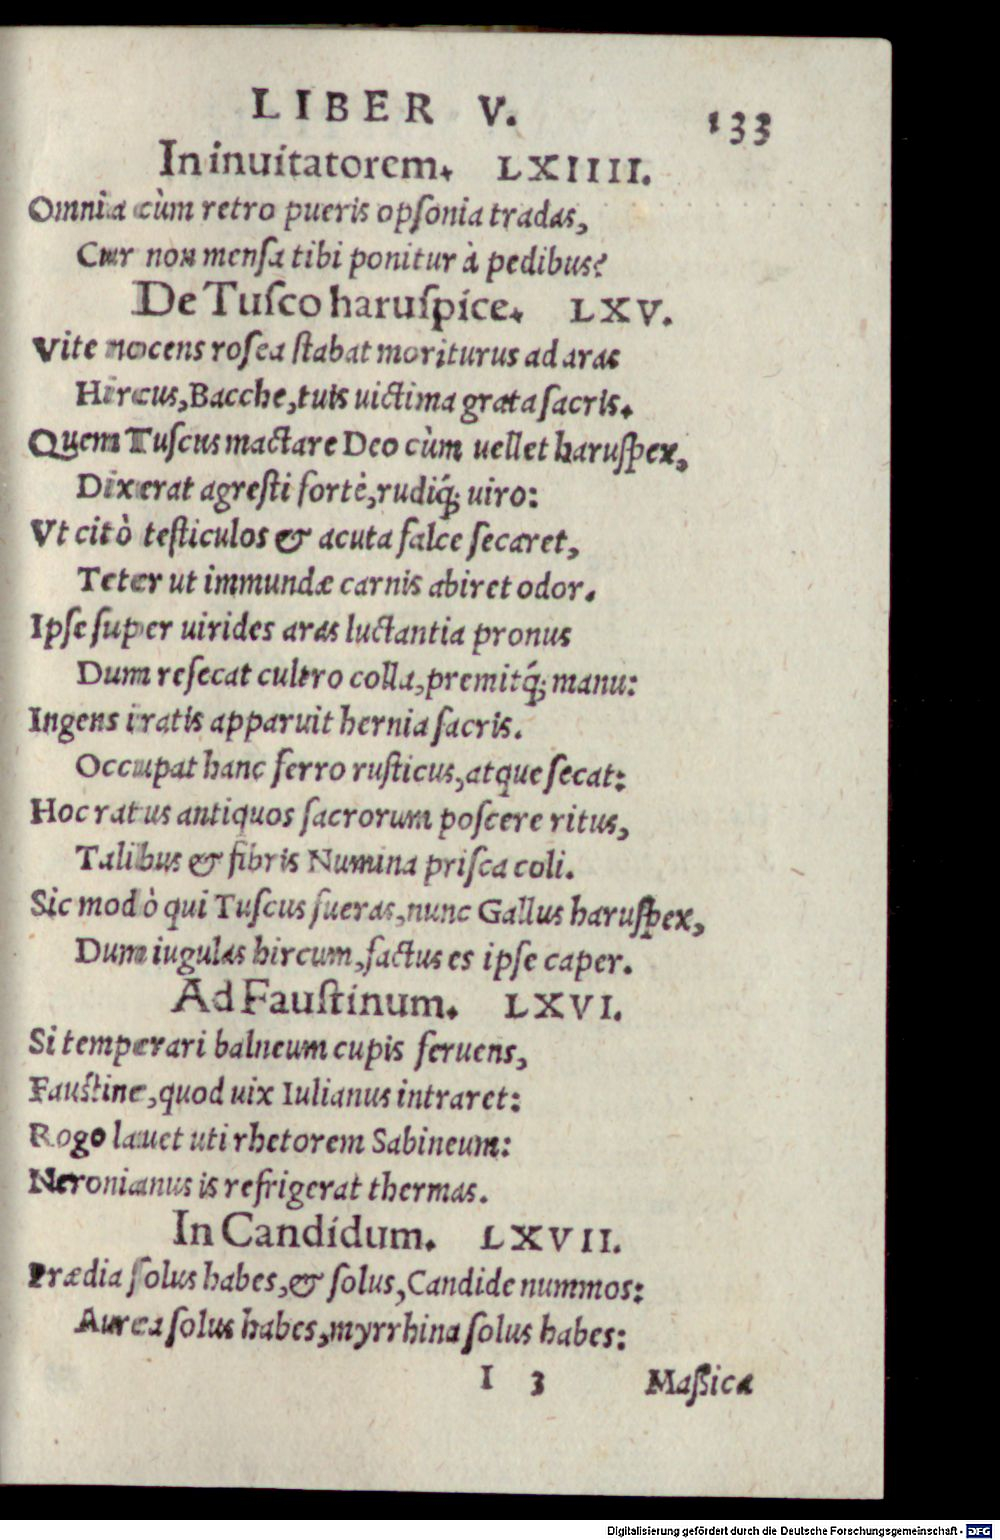 LIBER V. 133
In inuitatorem. LXIIII.
Omnia cùm retro pueris opſonia tradas,
Cur non menſa tibi ponitur à pedibus?
De Tuſco haruſpice. LXV.
Vite nocens roſea ſtabat moriturus ad aras
Hircus, Bacche, tuis uictima grata ſacris.
Quem Tuſcus mactare Deo cùm uellet haruſpex,
Dixerat agreſti fortè, rudiq́; uiro:
Vt citò teſticulos & acuta falce ſecaret,
Teter ut immundæ carnis abiret odor.
Ipſe ſuper uirides aras luctantia pronus
Dum reſecat cultro colla, premitq́; manu:
Ingens iratis apparuit hernia ſacris.
Occupat hanc ferro ruſticus, atque ſecat:
Hoc ratus antiquos ſacrorum poſcere ritus,
Talibus & fibris Numina priſca coli.
Sic modò qui Tuſcus fueras, nunc Gallus haruſpex,
Dum iugulas hircum, factus es ipſe caper.
Ad Fauſtinum. LXVI.
Si temperari balneum cupis feruens,
Fauſtine, quod uix Iulianus intraret:
Rogo lauet uti rhetorem Sabineum:
Neronianus is refrigerat thermas.
In Candidum. LXVII.
Prædia ſolus habes, & ſolus, Candide nummos:
Aurea ſolus habes, myrrhina ſolus habes:
I 3 Maßica
Digitalisierung gefördert durch die Deutsche Forschungsgemeinschaft - DFG